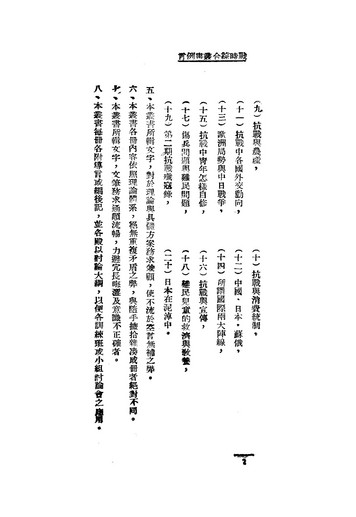 戰時綜合叢書例言
（九）抗戰與農產，
（十）抗戰與消費統制，
（十一）抗戰中各國外交動向，
（十二）中國、日本、蘇俄，
（十三）歐洲局勢與中日戰爭，
（十四）所謂國際兩大陣線，
（十五）抗戰中青年怎樣自修，
（十六）抗戰與宣傳，
（十七）傷兵問題與難民問題，
（十八）難民兒童的救濟與教養，
（十九）第二期抗戰機冠錄，
（二十）日本在泥淖中。
五、本叢書所輯文字，對於理論與具體方案務求兼顧，使不流於空言無補之弊。
六、本叢書各冊內容依照理論體系，極無重複矛盾之弊，與隨手摭拾雜湊成冊者絕對不同。
七、本叢書所輯文字，文筆務求通順流暢，力避冗長晦澀及意識不正確者。
八、本叢書每冊各附導言或編後記，並各殿以討論大綱，以便各訓練班或小組討論會之應用。
2